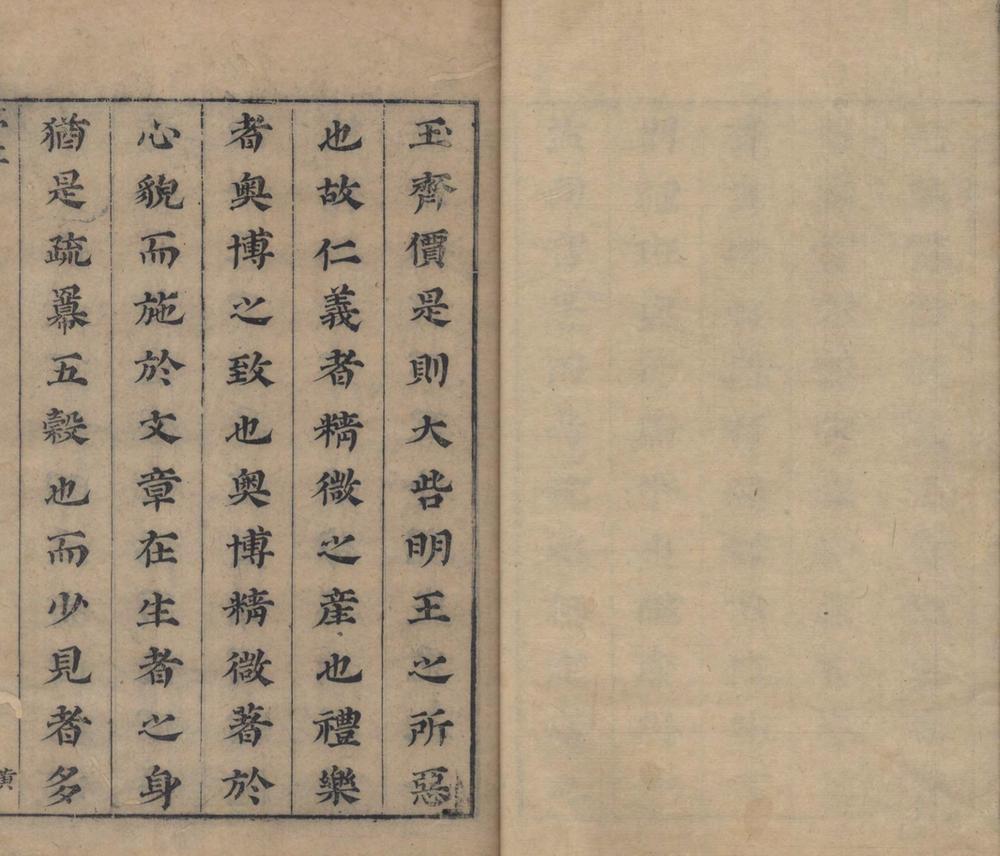 玉齊價是則大呰明王之所惡
也故仁義者精微之產也禮樂
者奧博之致也奧博精微著於
心貌而施於文章在生者之身
猶是疏羃五穀也而少見者多
黃